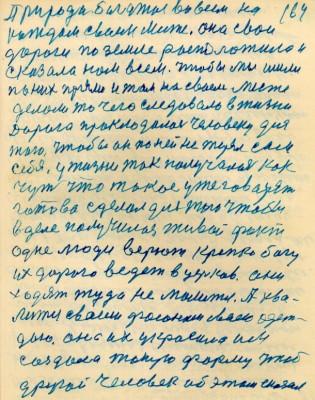 184
Природа богата во всем на
каждом своем месте. она свои
дороги по земле расположила и
сказала нам всем. чтобы мы шли
по них прямо и там на своем месте
делали то чего следовало в жизни
Дорога прокладалась человеку для
того, чтобы он по ней не терял сам
себя, у жизни так получалося как
чуть что такое уже говорят
готова сделали для того чтобы
в деле получился живой факт
одне люди верют крепко богу
их дорога ведет в церков. они
ходят туда не молится. А хва-
лится своей фасонистаю одеж-
дою, она их украсила им
создала такую форму чтоб
другой человек об этом сказал